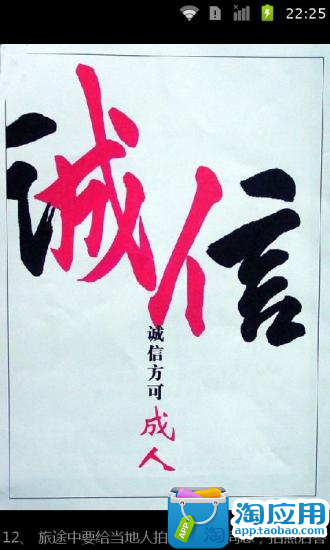 22:25
诚信
诚信方可
成
人
12、 旅途中要给当地人拍
APP
淘应用
app.taobao.com